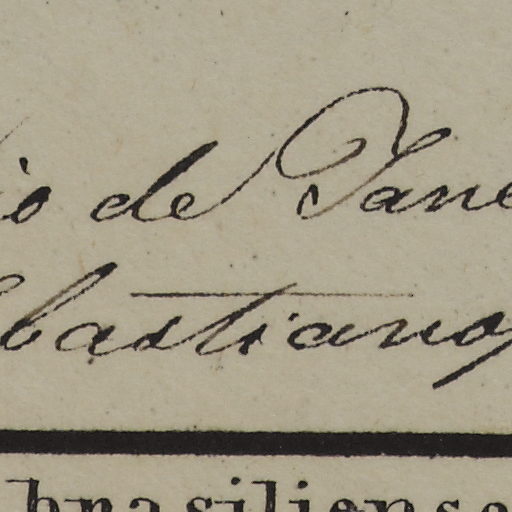 io de Jane
bastianop
brasiliense